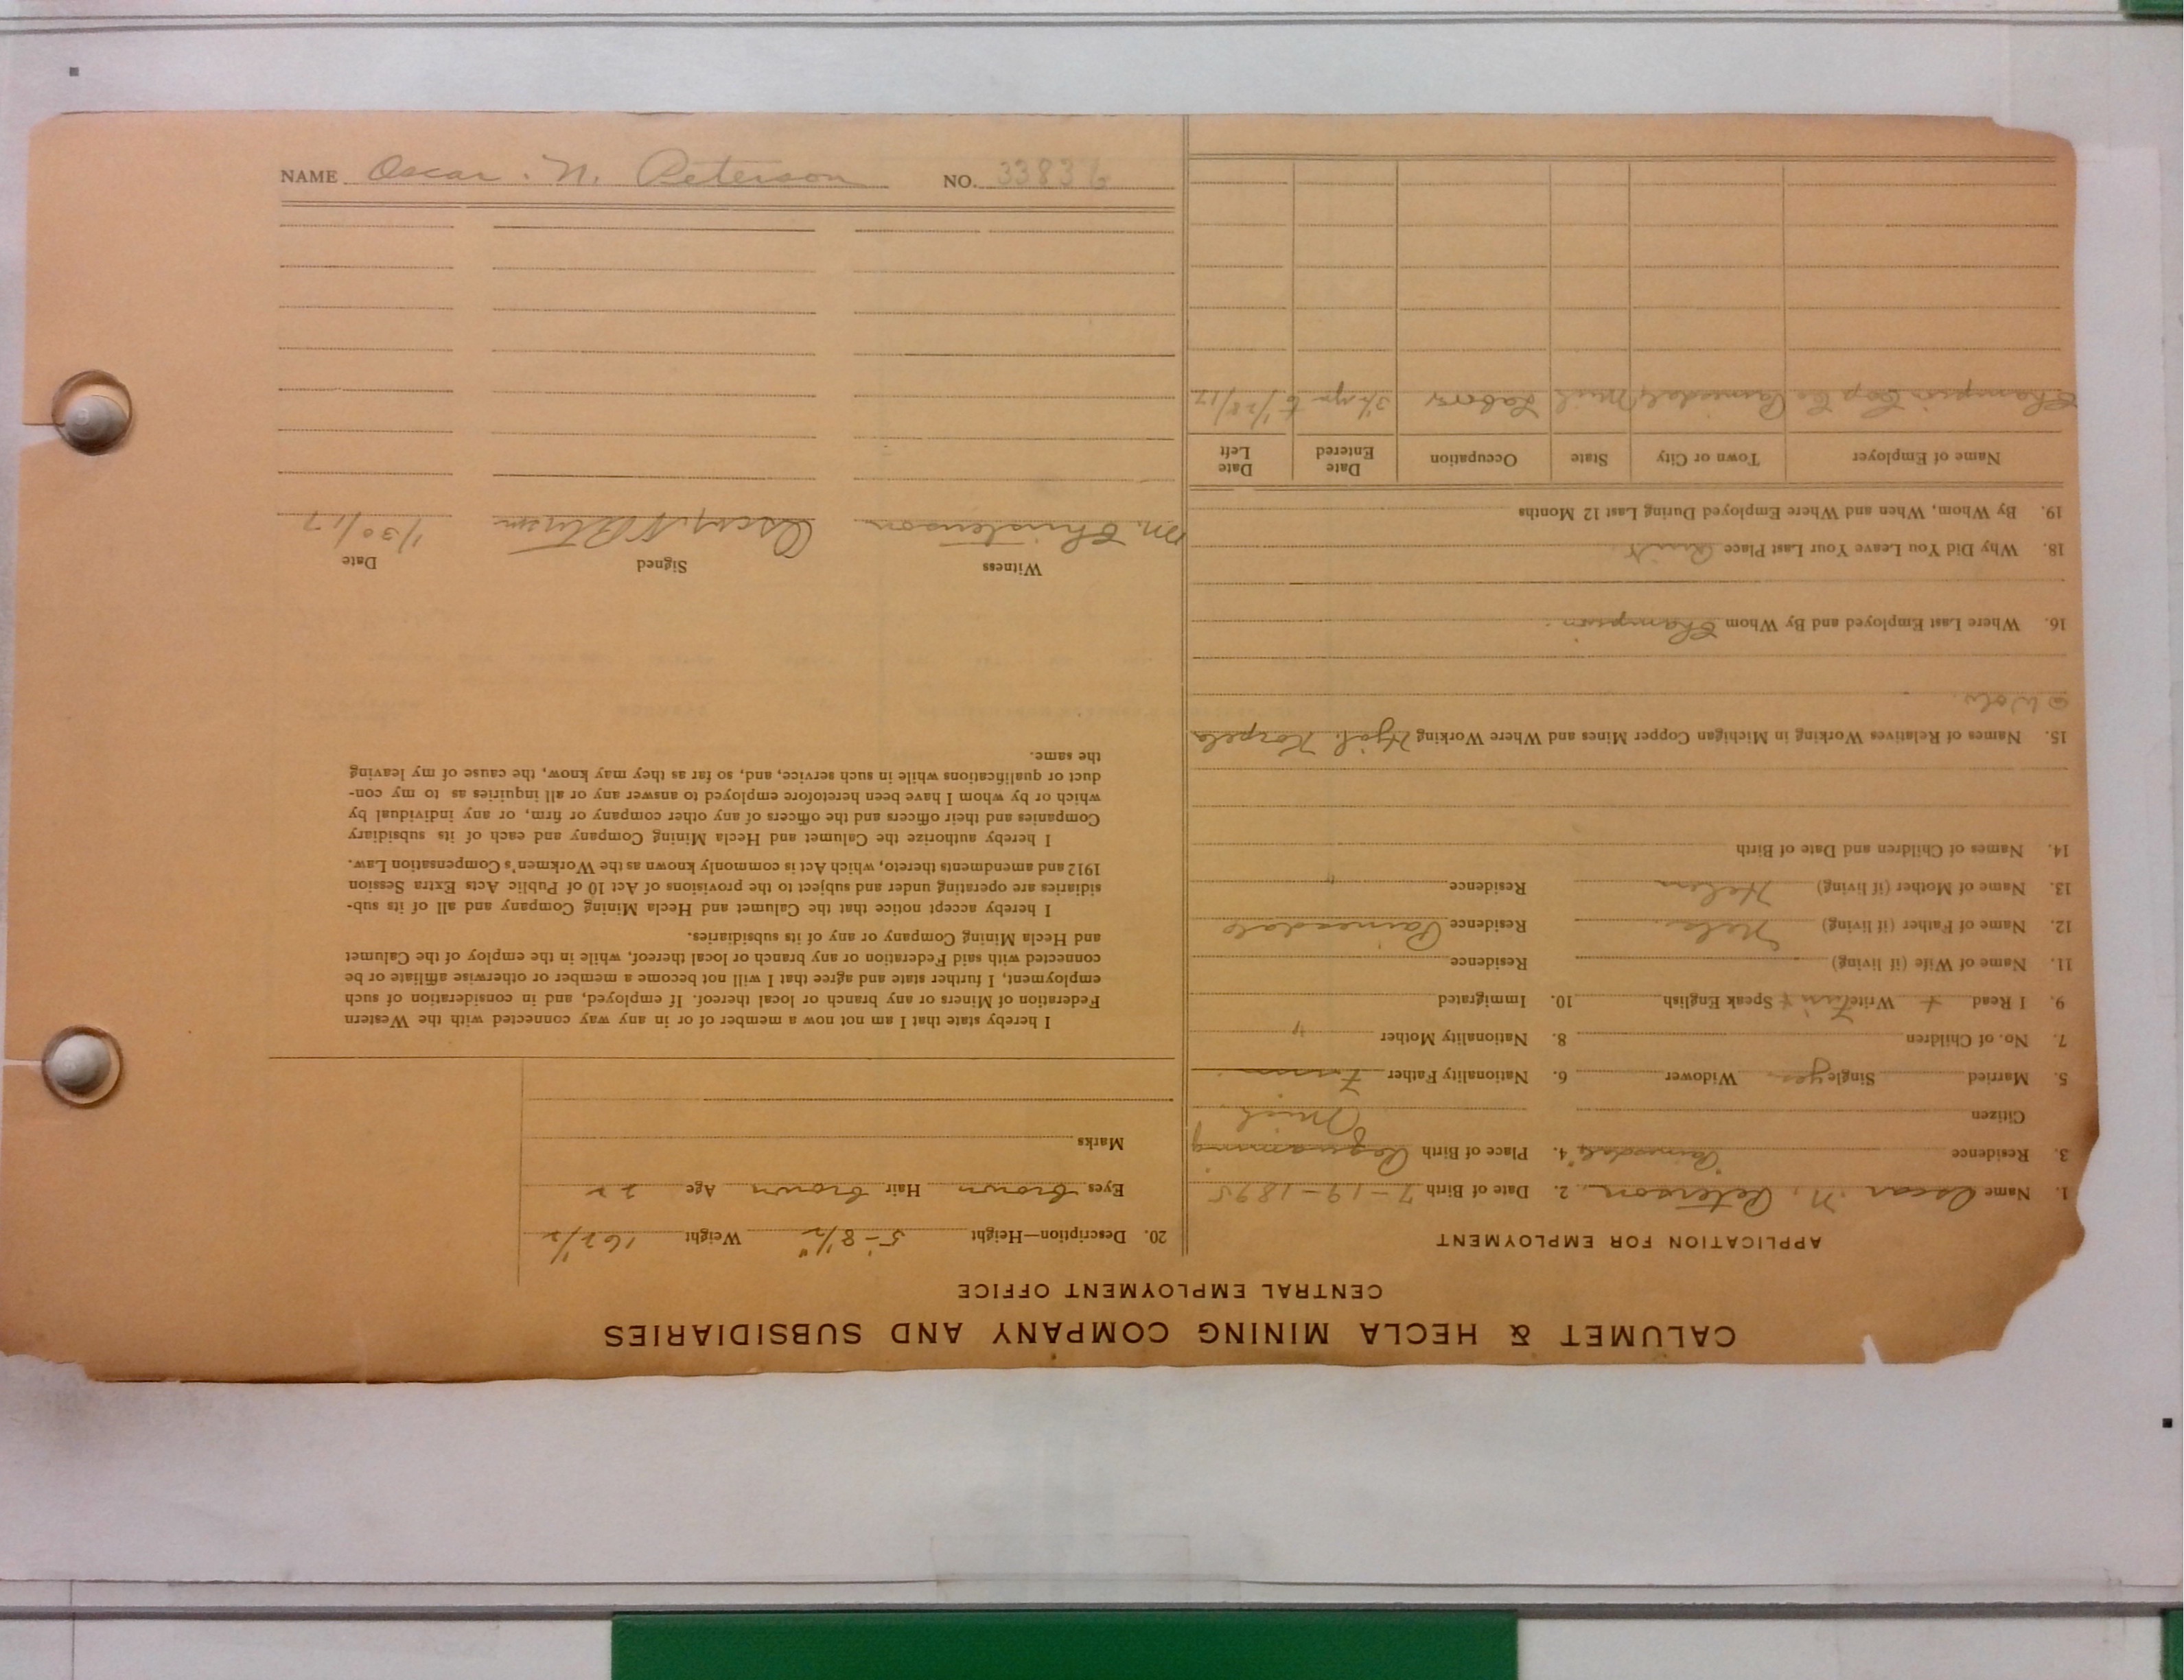 NAME Oscar. N. Peterson NO. 33836
CALUMET & HECLA MINING COMPANY AND SUBSIDIARIES
CENTRAL EMPLOYMENT OFFICE
APPLICATION FOR EMPLOYMENT
1. Name Oscar N. Peterson 2. Date of Birth 7-19-1895
3. Residence Painesdale 4. Place of Birth
Citizen Mich
5. Married Single yes Widower 6. Nationality Father Finn
7. No. of Children 8. Nationality Mother "
9. I Read + Write Finn + Speak English 10. Immigrated
11. Name of Wife (if living) Residence
12. Name of Father (if living) Nels Residence Painesdale
13. Name of Mother (if living) Helen Residence "
14. Names of Children and Date of Birth
15. Names of Relatives Working in Michigan Copper Mines and Where Working Hjal. Karpela
@ Wolv.
16. Where Last Employed and By Whom Champion
18. Why Did You Leave Your Last Place Quit
19. By Whom, When and Where Employed During Last 12 Months
Name of Employer Town or City State Occupation Date Entered Date Left
Champion Cop Co Painesdale Mich Labor 3½ yrs to 1/28/17
20. Description—Height 5'-8½" Weight 162½
Eyes brown Hair brown Age 22
Marks
I hereby state that I am not now a member of or in any way connected with the Western
Federation of Miners or any branch or local thereof. If employed, and in consideration of such
employment, I further state and agree that I will not become a member or otherwise affiliate or be
connected with said Federation or any branch or local thereof, while in the employ of the Calumet
and Hecla Mining Company or any of its subsidiaries.
I hereby accept notice that the Calumet and Hecla Mining Company and all of its sub-
sidiaries are operating under and subject to the provisions of Act 10 of Public Acts Extra Session
1912 and amendments thereto, which Act is commonly known as the Workmen's Compensation Law.
I hereby authorize the Calumet and Hecla Mining Company and each of its subsidiary
Companies and their officers and the officers of any other company or firm, or any individual by
which or by whom I have been heretofore employed to answer any or all inquiries as to my con-
duct or qualifications while in such service, and, so far as they may know, the cause of my leaving
the same.
Witness Signed Date
M. Christenson Oscar N Peterson 1/30/17